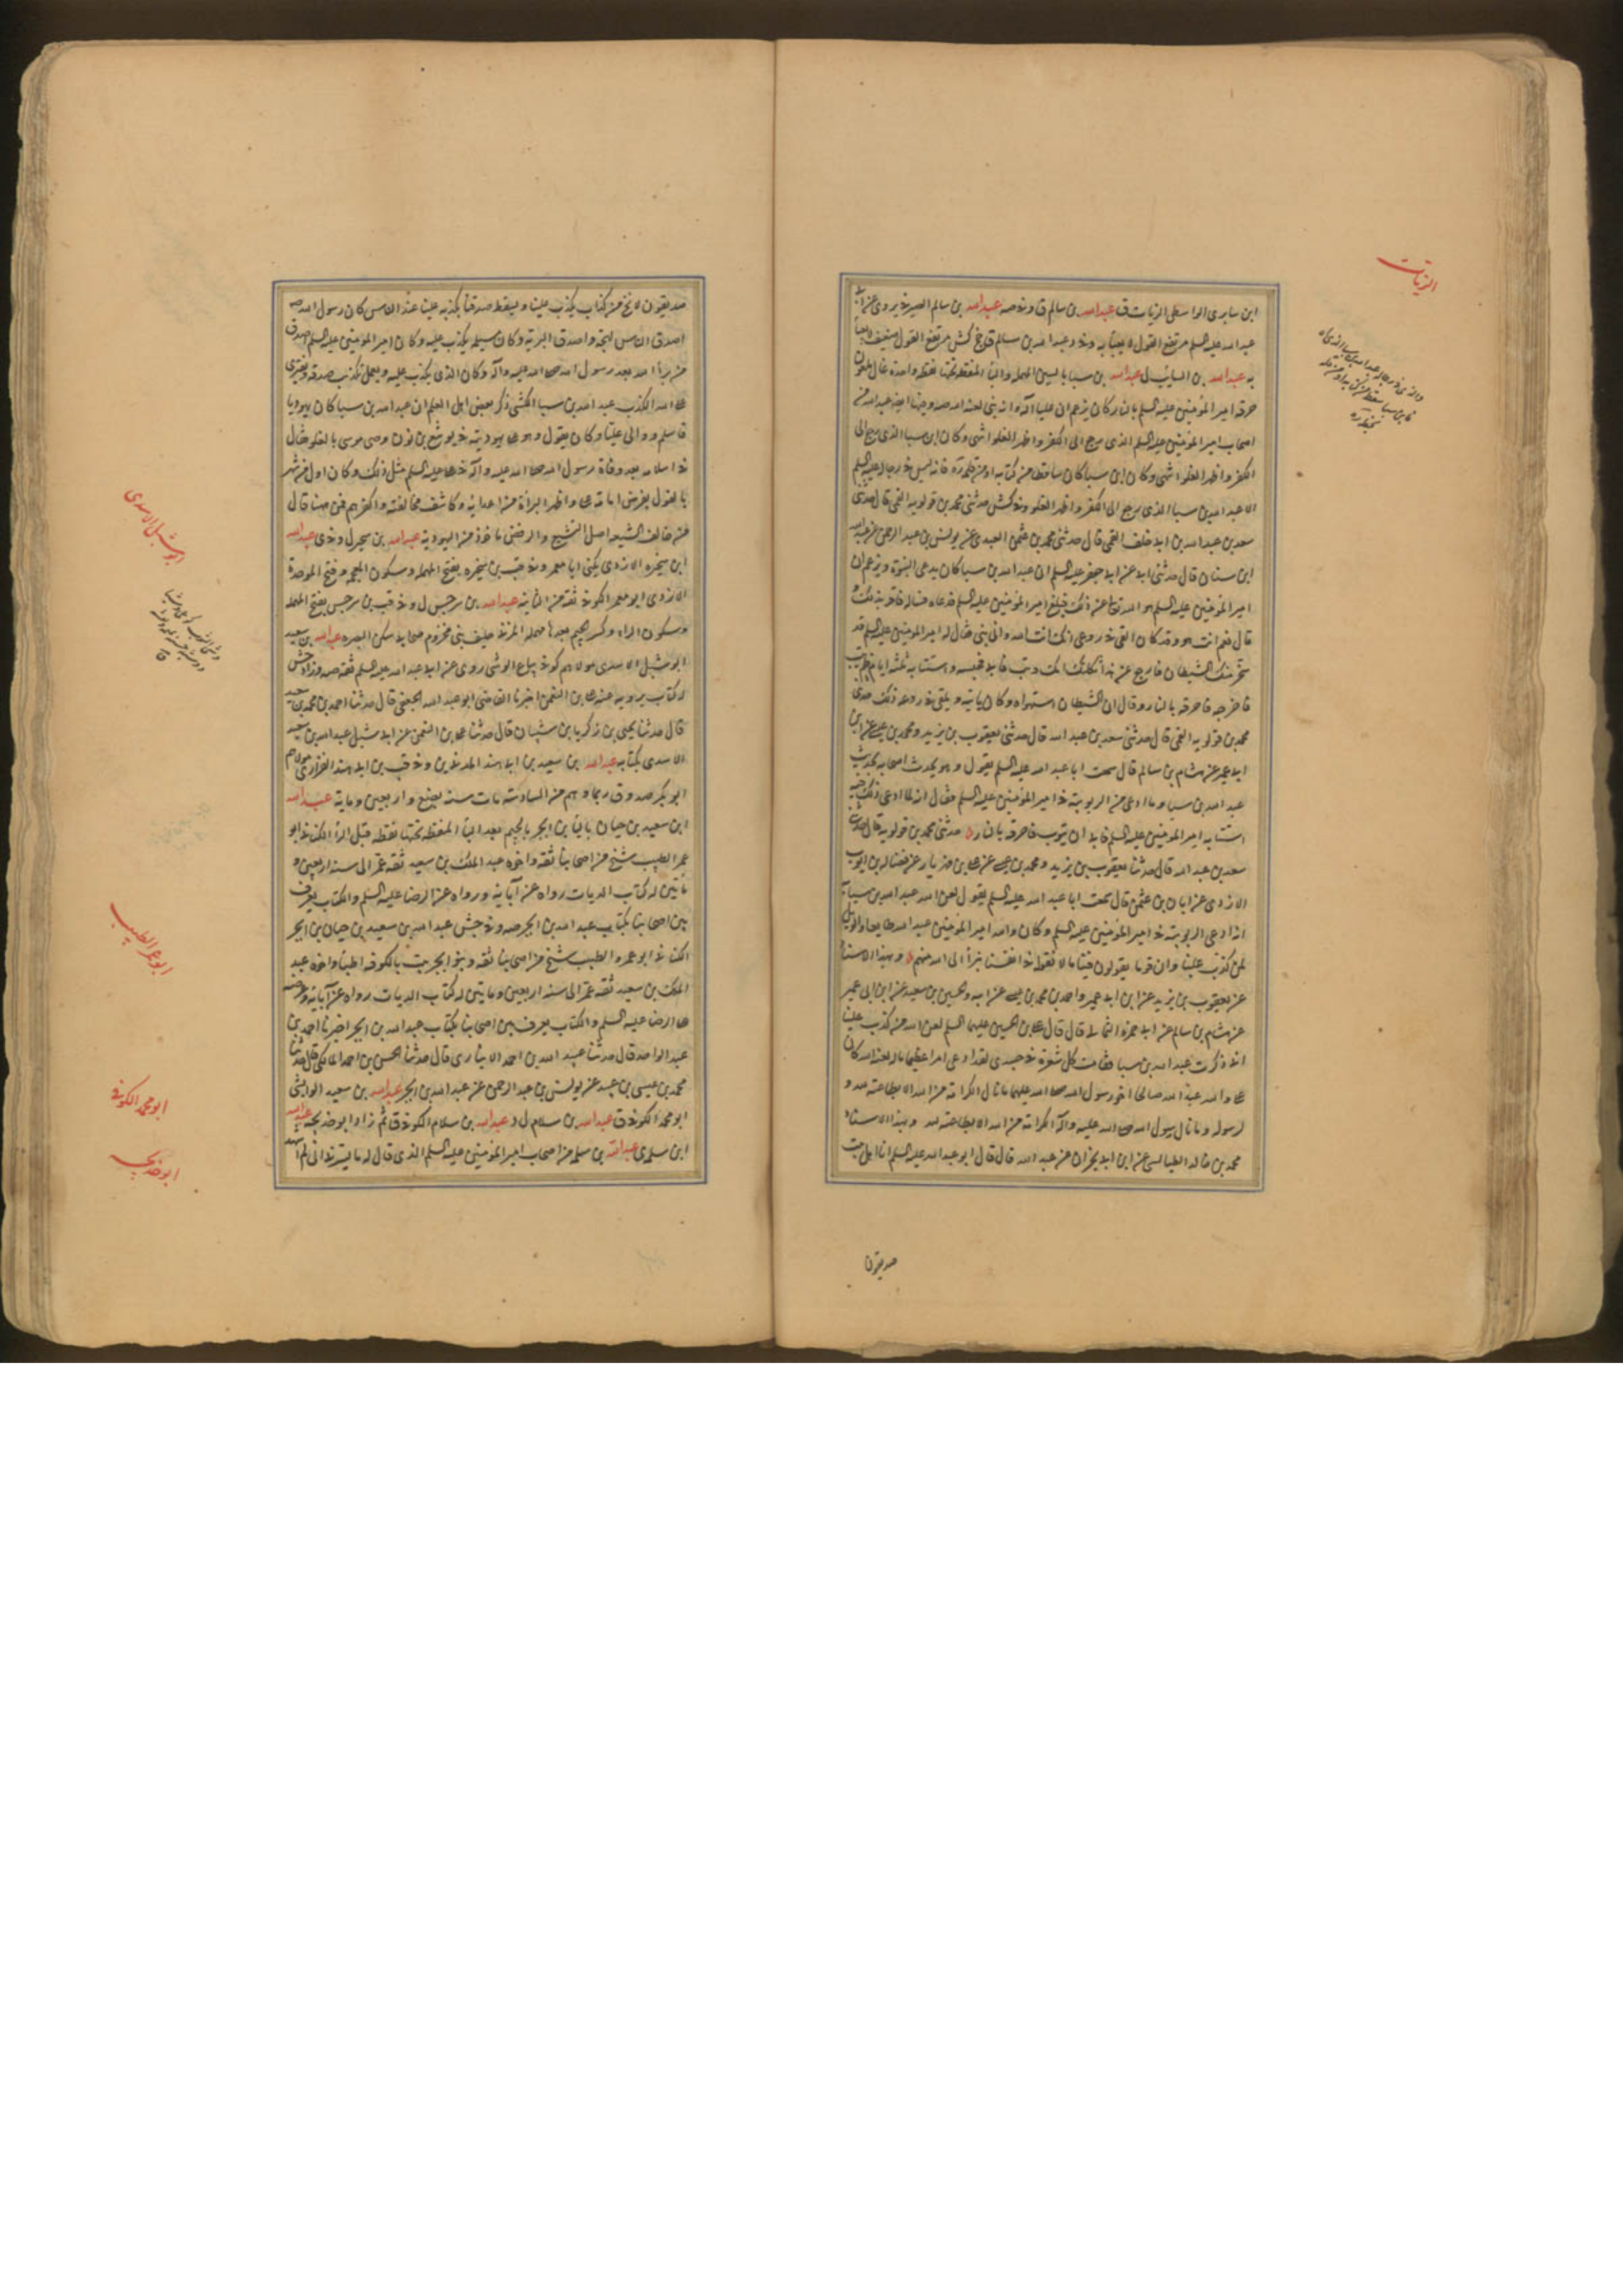 الزيات
ابن سابرى الواسطى الزيات ق عبدالله بن سالم ق و فى صه عبدالله بن سالم الصيرفى روى عن ابى
عبد الله عليه السلم مرتفع القول لا يعبأ به و فى د عبد الله بن سالم ق جخ كش مرتفع القول ضعيف لا يعبأ
به عبدالله بن السايب ل عبدالله بن سبا بالسين المهملة والباء المنقطة تحتها نقطة واحدة غال ملعون
حرقه امير المؤمنين عليه السلم بالنار كان يزعم ان عليا اله وانه نبى لعنه الله صه و جنها ايضا عبد الله من
اصحاب امير المؤمنين عليه السلم الذى رجع الى الكفر واظهر الغلو انتهى وكان ابن سبا الذى رجع الى
الكفر واظهر الغلو انتهى وكان ابن سبا كان ساقطا من كتابه او من قلمه ره فانه ليس فى رجاله عليه السلم
الا عبد الله بن سبا الذى رجع الى الكفر واظهر الغلو و فى كش حدثنى محمد بن قولويه القمى قال حدثنى
سعد بن عبد الله بن ابى خلف القمى قال حدثنى محمد بن عثمن العبدى عن يونس بن عبد الرحمن عن عبدالله
ابن سنان قال حدثنى ابى عن ابى جعفر عليه السلم ان عبد الله بن سبا كان يدعى النبوة ويزعم ان
امير المؤمنين عليه السلم هو الله تعالى عن ذلك فبلغ امير المؤمنين عليه السلم فدعاه فساله فاقر بذلك و
قال نعم انت هو وقد كان القى فى روعى انك انت الله وانى نبى فقال له امير المؤمنين عليه السلم قد
سخر منك الشيطان فارجع عن هذا ثكلتك امك وتب فابى فحبسه واستتابه ثلثة ايام فلم يتب
فاخرجه فاحرقه بالنار وقال ان الشيطان استهواه وكان ياتيه ويلقى فى روعه ذلك حدثنى
محمد بن قولويه القمى قال حدثنى سعد بن عبد الله قال حدثنى يعقوب بن يزيد ومحمد بن عيسى عن ابن
ابى عمير عن هشام بن سالم قال سمعت ابا عبد الله عليه السلم يقول وهو يحدث اصحابه بحديث
عبد الله بن سبا وما ادعى من الربوبية فى امير المؤمنين عليه السلم فقال انه لما ادعى ذلك فيه
استتابه امير المؤمنين عليه السلم فابى ان يتوب فاحرقه بالنار حدثنى محمد بن قولويه قال حدثنى
سعد بن عبد الله قال حدثنا يعقوب بن يزيد ومحمد بن عيسى عن على بن مهزيار عن فضاله بن ايوب
الازدى عن ابان بن عثمن قال سمعت ابا عبد الله عليه السلم يقول لعن الله عبد الله بن سبا
انه ادعى الربوبية فى امير المؤمنين عليه السلم وكان والله امير المؤمنين عبد الله طايعا والويل
لمن كذب علينا وان قوما يقولون فينا ما لا نقوله فى انفسنا نبرأ الى الله منهم وبهذا الاسناد
عن يعقوب بن يزيد عن ابن ابى عمير واحمد بن محمد بن عيسى عن ابيه والحسين بن سعيد عن ابن ابى عمير
عن هشام بن سالم عن ابى حمزة الثمالى قال قال على بن الحسين عليهما السلم لعن الله من كذب علينا
انى ذكرت عبد الله بن سبا فقامت كل شعرة فى جسدى لقد ادعى امرا عظيما ماله لعنه الله كان
على والله عبدا لله صالحا اخو رسول الله صلى الله عليهما ما نال الكرامة من الله الا بطاعته لله و
لرسوله وما نال رسول الله صلى الله عليه واله الكرامة من الله الا بطاعته لله وبهذا الاسناد
محمد بن خالد الطيالسى عن ابن ابى نجران عن عبد الله قال قال ابو عبد الله عليه السلم انا اهل بيت
صديقون
صديقون لا نخلو من كذاب يكذب علينا ويسقط صدقنا بكذبه علينا عند الناس كان رسول الله ص
اصدق الناس لهجة واصدق البرية وكان مسيلمة يكذب عليه وكان امير المؤمنين عليه السلم اصدق
من برأ الله بعد رسول الله صلى الله عليه وآله وكان الذى يكذب عليه ويعمل تكذيب صدقه ويفترى
على الله الكذب عبد الله بن سبا الكشى ذكر بعض اهل العلم ان عبد الله بن سبا كان يهوديا
فاسلم ووالى عليا وكان يقول وهو على يهوديته فى يوشع بن نون وصى موسى بالغلو فقال
فى اسلامه بعد وفاة رسول الله صلى الله عليه واله فى على عليه السلم مثل ذلك وكان اول من شهر
بالقول بفرض امامة على واظهر البرأة من اعدائه وكاشف مخالفيه واكفرهم فمن هنا قال
من خالف الشيعة اصل التشيع والرفض ماخوذ من اليهودية عبدالله بن سجرل و فى ى عبدالله
ابن سخبره الازدى يكنى ابا معمر و فى قب بن سخبره بفتح المهملة وسكون المعجمة وفتح الموحدة
الازدى ابو معمر الكوفى ثقة من الثانية عبدالله بن سرجس ل و فى قب بن سرجس بفتح المهملة
وسكون الراء وكسر الجيم بعدها مهملة المزنى حليف بنى مخزوم صحابى سكن البصره عبدالله بن سعيد
ابو شبل الاسدى مولاهم كوفى بياع الوشى روى عن ابى عبد الله عليه السلم ثقة صه وزاد جش
له كتاب يرويه عنه على بن النعمن اخبرنا القاضى ابو عبد الله الجعفى قال حدثنا احمد بن محمد بن سعيد
قال حدثنا يحيى بن زكريا بن شيبان قال حدثنا على بن النعمن عن ابى شبل عبد الله بن سعيد
الاسدى بكتابه عبدالله بن سعيد بن ابى هند المدنى ين و فى قب بن ابى هند الفزارى مولاهم
ابو بكر صدوق ربما وهم من السادسة مات سنه بضع واربعين وماية عبدالله
ابن سعيد بن حيان بالياء بن ابجر بالجيم بعد الباء المنقطة تحتها نقطة قبل الراء الكنانى ابو
عمر الطبيب شيخ من اصحابنا ثقة واخوه عبد الملك بن سعيد ثقة عمر الى سنة اربعين و
مأتين له كتاب الديات رواه عن آبائه ورواه عن الرضا عليه السلم والكتاب يعرف
بين اصحابنا بكتاب عبد الله بن ابجر صه و فى جش عبد الله بن سعيد بن حيان بن ابجر
الكنانى ابو عمرو الطبيب شيخ من اصحابنا ثقة وبنو ابجر بيت بالكوفه اطباء واخوه عبد
الملك بن سعيد ثقة عمر الى سنة اربعين ومايتين له كتاب الديات رواه عن آبائه وعرضه
على الرضا عليه السلم والكتاب يعرف بين اصحابنا بكتاب عبد الله بن ابجر اخبرنا احمد بن
عبد الواحد قال حدثنا عبيد الله بن احمد الانبارى قال حدثنا الحسن بن احمد المالكى قال حدثنا
محمد بن عيسى بن عبيد عن يونس بن عبد الرحمن عن عبد الله بن ابجر عبدالله بن سعيد الوابشى
ابو محمد الكوفى ق عبدالله بن سلام ل د عبدالله بن سلام الكوفى ق ثم زاد ابو خديجه عبدالله
ابن سلمى عبدالله بن سلمه من اصحاب امير المؤمنين عليه السلم الذى قال له ما يسرنى انى لم اشهد
ابو شبل الاسدى
ابو عمر الطبيب
ابو محمد الكوفى
ابو خديجه